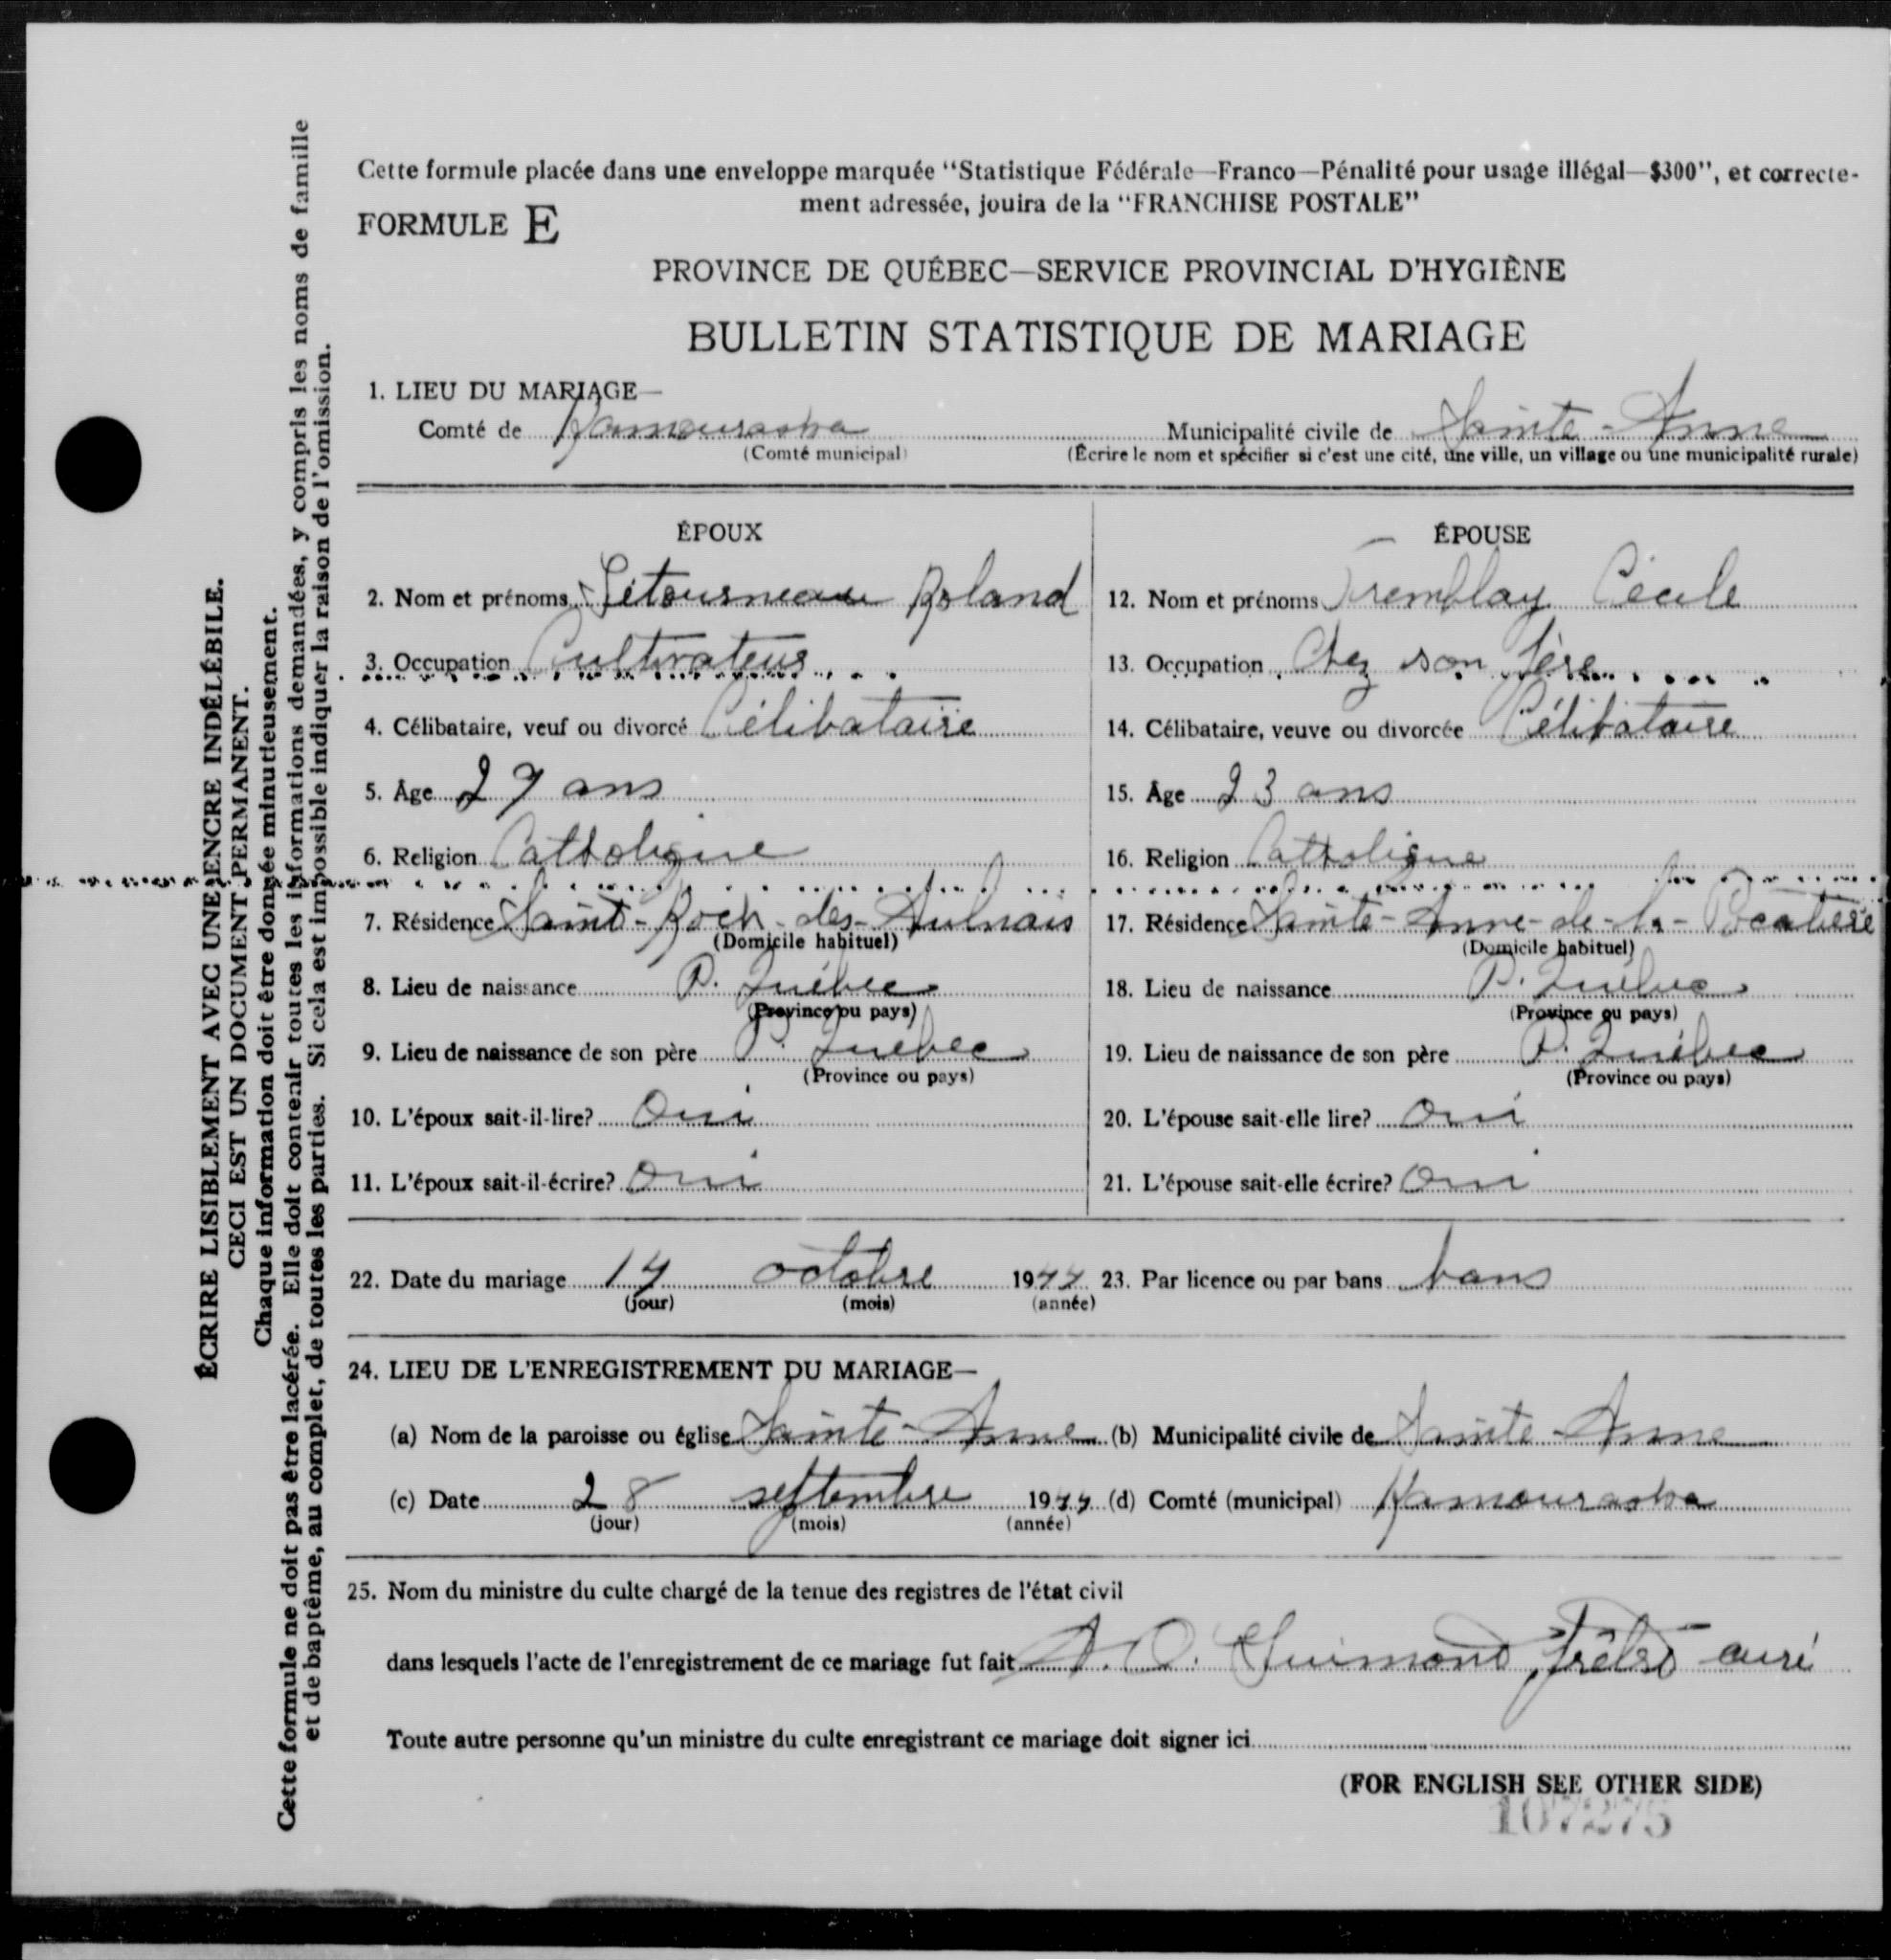 Cette formule placée dans une enveloppe marquée "Statistique Fédérale—Franco—Pénalité pour usage illégal—$300", et correcte-
ment adressée, jouira de la "FRANCHISE POSTALE"
FORMULE E
PROVINCE DE QUÉBEC—SERVICE PROVINCIAL D'HYGIÈNE
BULLETIN STATISTIQUE DE MARIAGE
1. LIEU DU MARIAGE—
Comté de Kamouraska Municipalité civile de Sainte-Anne
(Comté municipal) (Écrire le nom et spécifier si c'est une cité, une ville, un village ou une municipalité rurale)
ÉPOUX
2. Nom et prénoms Létourneau Roland
3. Occupation Cultivateur
4. Célibataire, veuf ou divorcé Célibataire
5. Âge 27 ans
6. Religion Catholique
7. Résidence Saint-Roch-des-Aulnais
(Domicile habituel)
8. Lieu de naissance P. Québec
(Province ou pays)
9. Lieu de naissance de son père P. Québec
(Province ou pays)
10. L'époux sait-il-lire? Oui
11. L'époux sait-il-écrire? Oui
ÉPOUSE
12. Nom et prénoms Tremblay Cécile
13. Occupation Chez son père
14. Célibataire, veuve ou divorcée Célibataire
15. Âge 23 ans
16. Religion Catholique
17. Résidence Sainte-Anne-de-la-Pocatière
(Domicile habituel)
18. Lieu de naissance P. Québec
(Province ou pays)
19. Lieu de naissance de son père P. Québec
(Province ou pays)
20. L'épouse sait-elle lire? Oui
21. L'épouse sait-elle écrire? Oui
22. Date du mariage 14 octobre 1944 23. Par licence ou par bans bans
(jour) (mois) (année)
24. LIEU DE L'ENREGISTREMENT DU MARIAGE—
(a) Nom de la paroisse ou église Sainte-Anne (b) Municipalité civile de Sainte-Anne
(c) Date 28 septembre 1944 (d) Comté (municipal) Kamouraska
(jour) (mois) (année)
25. Nom du ministre du culte chargé de la tenue des registres de l'état civil
dans lesquels l'acte de l'enregistrement de ce mariage fut fait A. O. Guimond, Prêtre curé
Toute autre personne qu'un ministre du culte enregistrant ce mariage doit signer ici
(FOR ENGLISH SEE OTHER SIDE)
107275
ÉCRIRE LISIBLEMENT AVEC UNE ENCRE INDÉLÉBILE.
CECI EST UN DOCUMENT PERMANENT.
Chaque information doit être donnée minutieusement.
Cette formule ne doit pas être lacérée. Elle doit contenir toutes les informations demandées, y compris les noms de famille
et de baptême, au complet, de toutes les parties. Si cela est impossible indiquer la raison de l'omission.